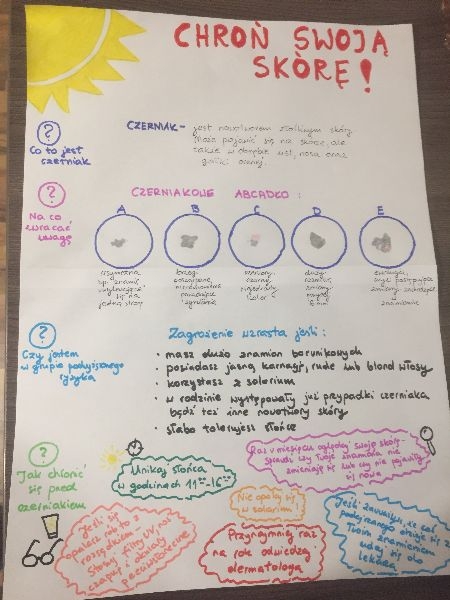 CHROŃ SWOJĄ
SKÓRĘ!
?
Co to jest
czerniak
CZERNIAK - jest nowotworem złośliwym skóry
Może pojawić się na skórze, ale
także w obrębie ust, nosa oraz
gałki ocznej.
?
Na co
zwracać
uwagę
CZERNIAKOWE ABCADŁO:
A
B
C
D
E
asymetria
np. znamię
się na
jedną stronę
brzegi
nierównomierne
czerwony
czarny
niejednolity
kolor
duży
rozmiar
zmiany
6 mm
ewolucja,
czyli postępujące
zmiany zachodzące
w
znamieniu
?
Czy jestem
w grupie podwyższonego
ryzyka
Zagrożenie wzrasta jeśli:
• masz dużo znamion barwnikowych
• posiadasz jasną karnację, rude lub blond włosy
• korzystasz z solarium
• w rodzinie występowały już przypadki czerniaka
bądź też inne nowotwory skóry
• słabo tolerujesz słońce
?
Jak chronić
się przed
czerniakiem
Unikaj słońca
w godzinach 11-16
Raz w miesiącu oglądaj swoją skórę -
sprawdź czy Twoje znamiona nie
zmieniają się lub czy nie pojawiły
się nowe
Nie opalaj się
w solarium!
Jeśli się
opalasz rób to z
rozsądkiem.
Stosuj filtry UV, noś
czapkę i okulary
przeciwsłoneczne
Przynajmniej raz
na rok odwiedzaj
dermatologa
Jeśli zauważysz, że coś
podejrzanego dzieje się z
Twoim znamieniem
udaj się do
lekarza